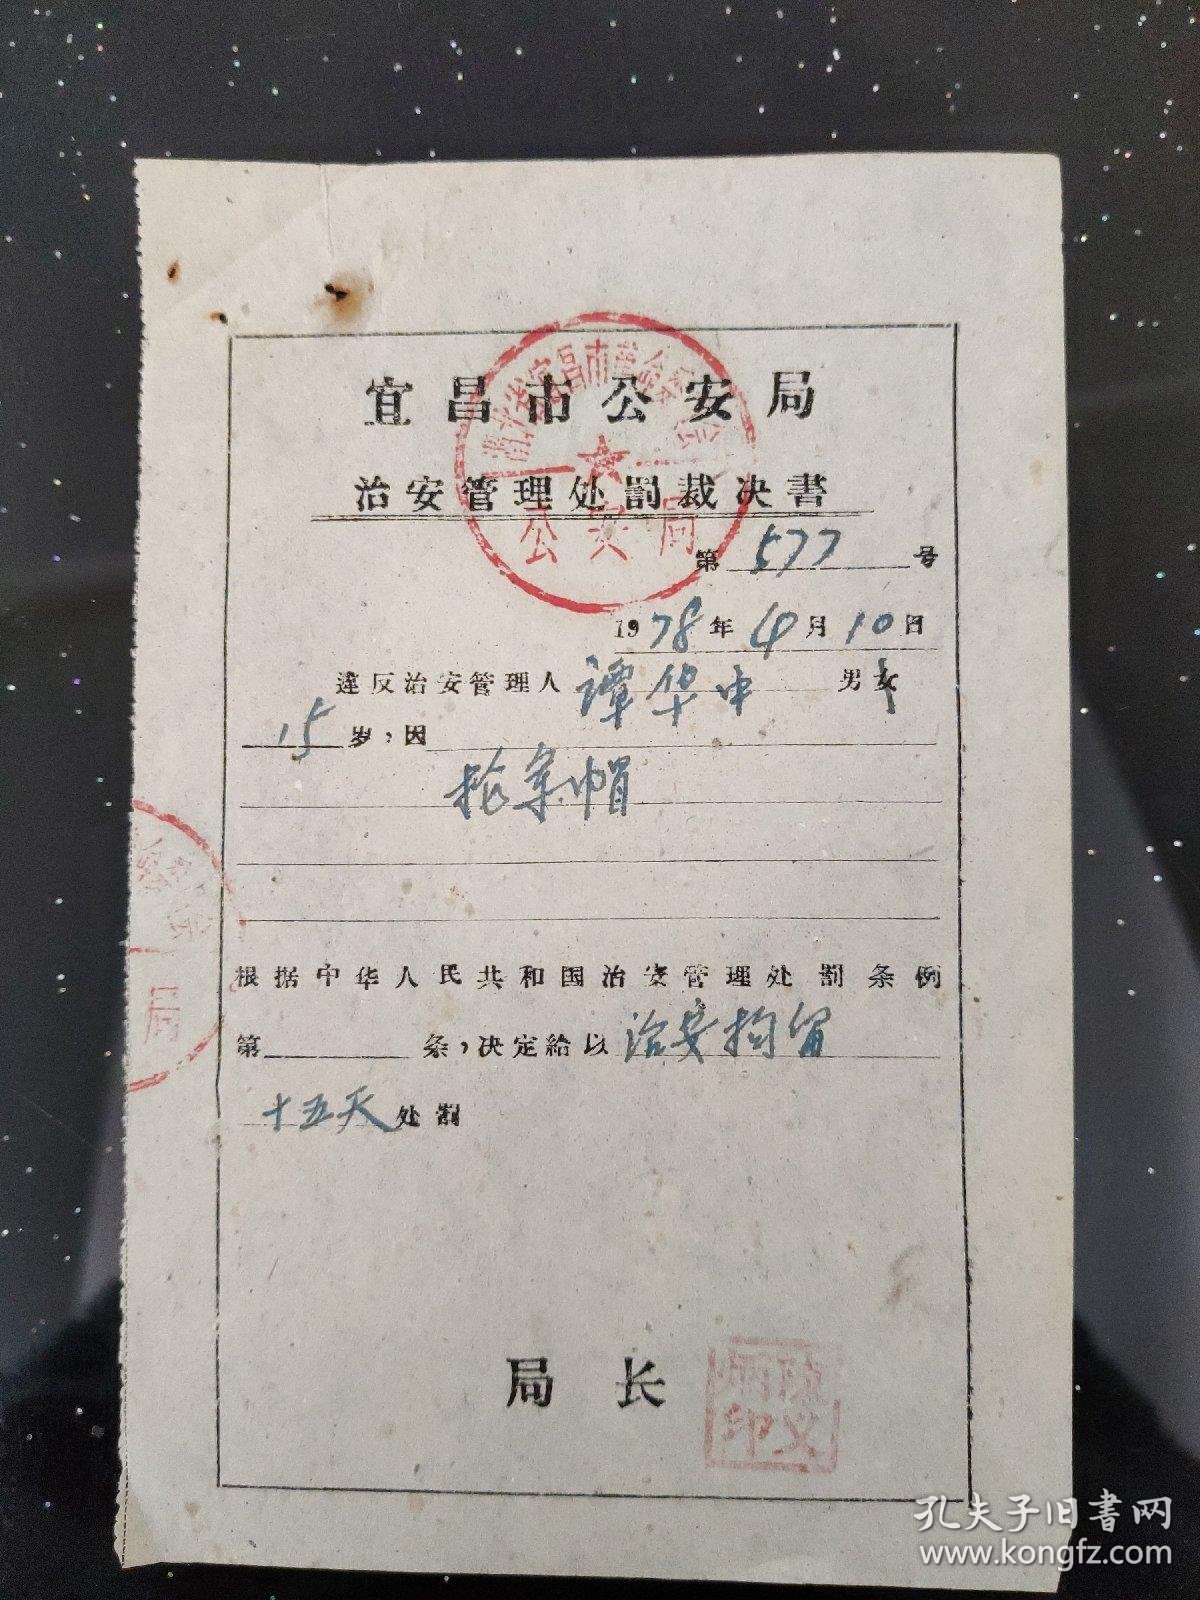 宜昌市公安局
治安管理处罰裁决書
湖北省宜昌市革命委员会
公安局
第 577 号
1978年4月10日
違反治安管理人 谭华中 男女
15岁,因
抢军帽
根据中华人民共和国治安管理处罰条例
第 条,决定給以 治安拘留
十五天处罰
局
局长
孔夫子旧書网
www.kongfz.com